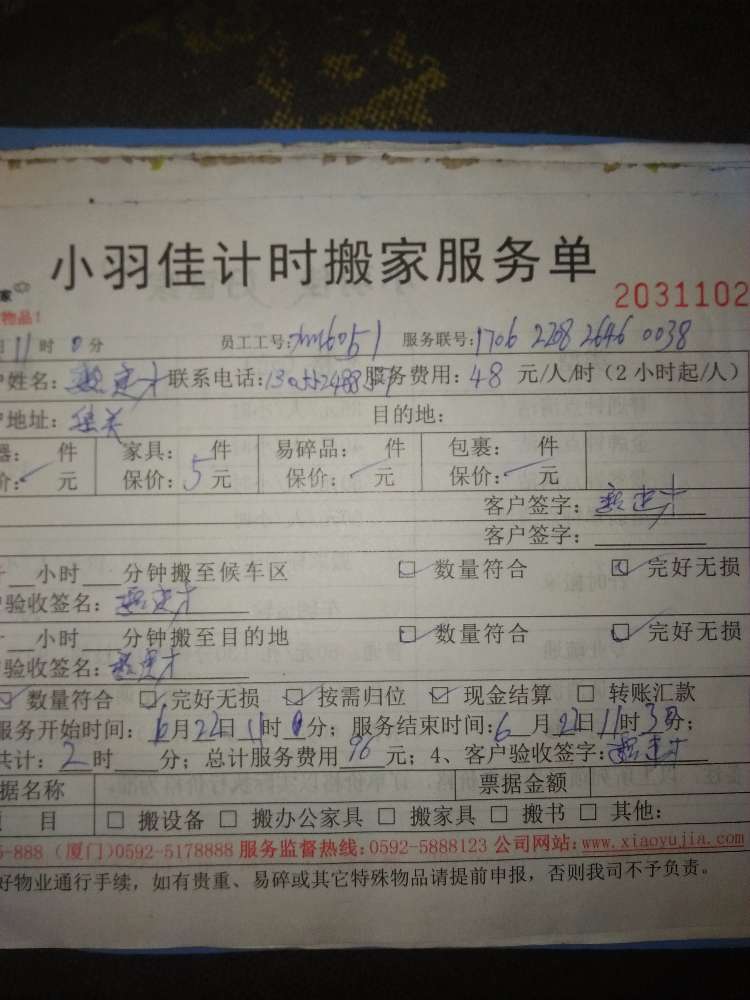 小羽佳计时搬家服务单
家
物品!
2031102
11时0分 员工工号:xm6051 服务联号:1706 2282 2646 0038
姓名: 联系电话: 服务费用:48元/人/时(2小时起/人)
地址: 目的地:
器: 件 家具: 件 易碎品: 件 包裹: 件
价:✓元 保价:5元 保价:✓元 保价:✓元
客户签字:
客户签字:
小时 分钟搬至候车区 ☑数量符合 ☑完好无损
验收签名:
小时 分钟搬至目的地 ☑数量符合 ☑完好无损
验收签名:
☑数量符合 ☑完好无损 ☑按需归位 ☑现金结算 □转账汇款
服务开始时间:6月22日11时0分;服务结束时间:6月22日11时3分;
共计:2时 分;总计服务费用96元;4、客户验收签字:
据名称 票据金额
目 □搬设备 □搬办公家具 □搬家具 □搬书 □其他:
5-888 (厦门)0592-5178888 服务监督热线:0592-5888123 公司网站:www.xiaoyujia.com
好物业通行手续,如有贵重、易碎或其它特殊物品请提前申报,否则我司不予负责。